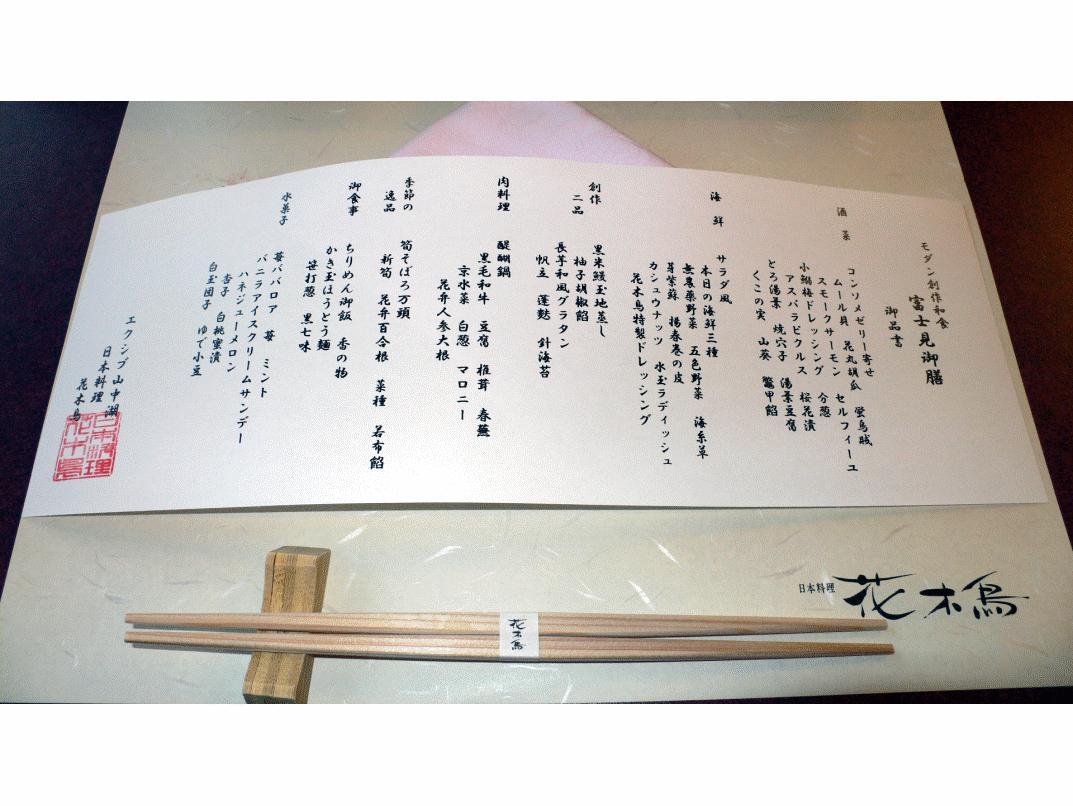 モダン創作和食
富士見御膳
御品書
酒菜
コンソメゼリー寄せ 蛍烏賊
ムール貝 花丸胡瓜 セルフィーユ
スモークサーモン 分葱
小鯛梅ドレッシング 桜花漬
アスパラピクルス 湯葉豆腐
とろ湯葉 焼穴子 鼈甲餡
くこの実 山葵
海鮮
サラダ風
本日の海鮮三種
無農薬野菜 五色野菜 海糸草
芽紫蘇 揚春巻の皮
カシュウナッツ 水玉ラディッシュ
花木鳥特製ドレッシング
創作
二品
黒米鰻玉地蒸し
柚子胡椒餡
長芋和風グラタン
帆立 蓬麩 針海苔
肉料理
醍醐鍋
黒毛和牛 豆腐 椎茸 春蕪
京水菜 白葱 マロニー
花弁人参大根
季節の
逸品
筍そぼろ万頭
新筍 花弁百合根 菜種 若布餡
御食事
ちりめん御飯 香の物
かき玉ほうとう麺
笹打葱 黒七味
水菓子
苺ババロア 苺 ミント
バニラアイスクリームサンデー
ハネジューメロン
杏子 白桃蜜漬
白玉団子 ゆで小豆
エクシブ山中湖
日本料理
花木鳥
日本料理
花木鳥
日本料理
花木鳥
花木鳥